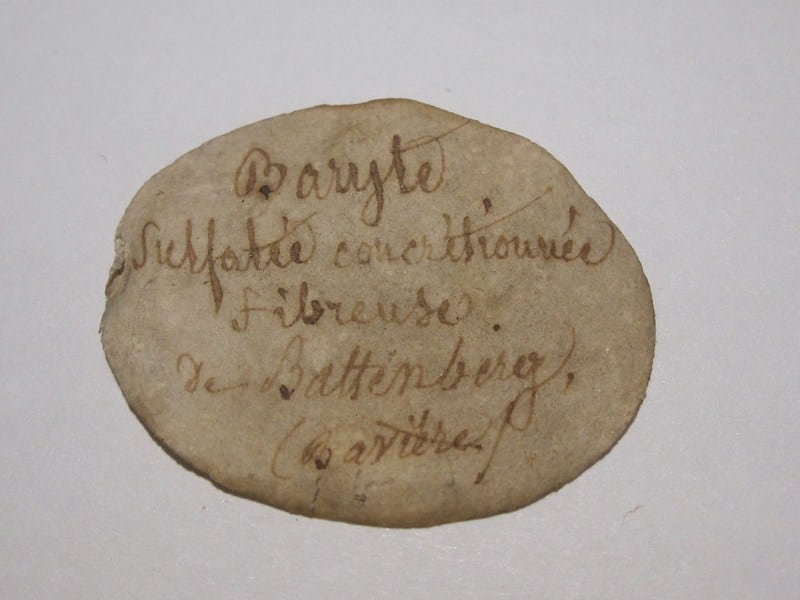 Baryte
Sulfatée concrétionnée
fibreuse
de Batténberg,
(Bavière)